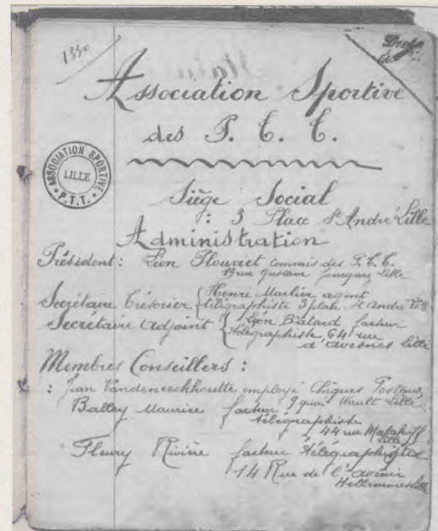 1330
Association Sportive
des P. T. T.
ASSOCIATION SPORTIVE
LILLE
P.T.T.
Siège Social
: 3 Place St André Lille
Administration
Président : Léon Plouviet commis des P.T.T.
rue Gustave Lille
Secrétaire Trésorier { Henri Martin agent
télégraphiste 3 place St André Lille
Secrétaire Adjoint { Léon Batard facteur
télégraphiste 64 rue
d'avesnes Lille
Membres Conseillers :
: Jean Vandeneeckhoutte employé Chèques Postaux
9 quai Wault Lille
Battey Maurice facteur
télégraphiste
44 rue Malakoff
Lille
Fleury Rivière facteur télégraphiste
14 Rue de l'avenir
Hellemmes Lille